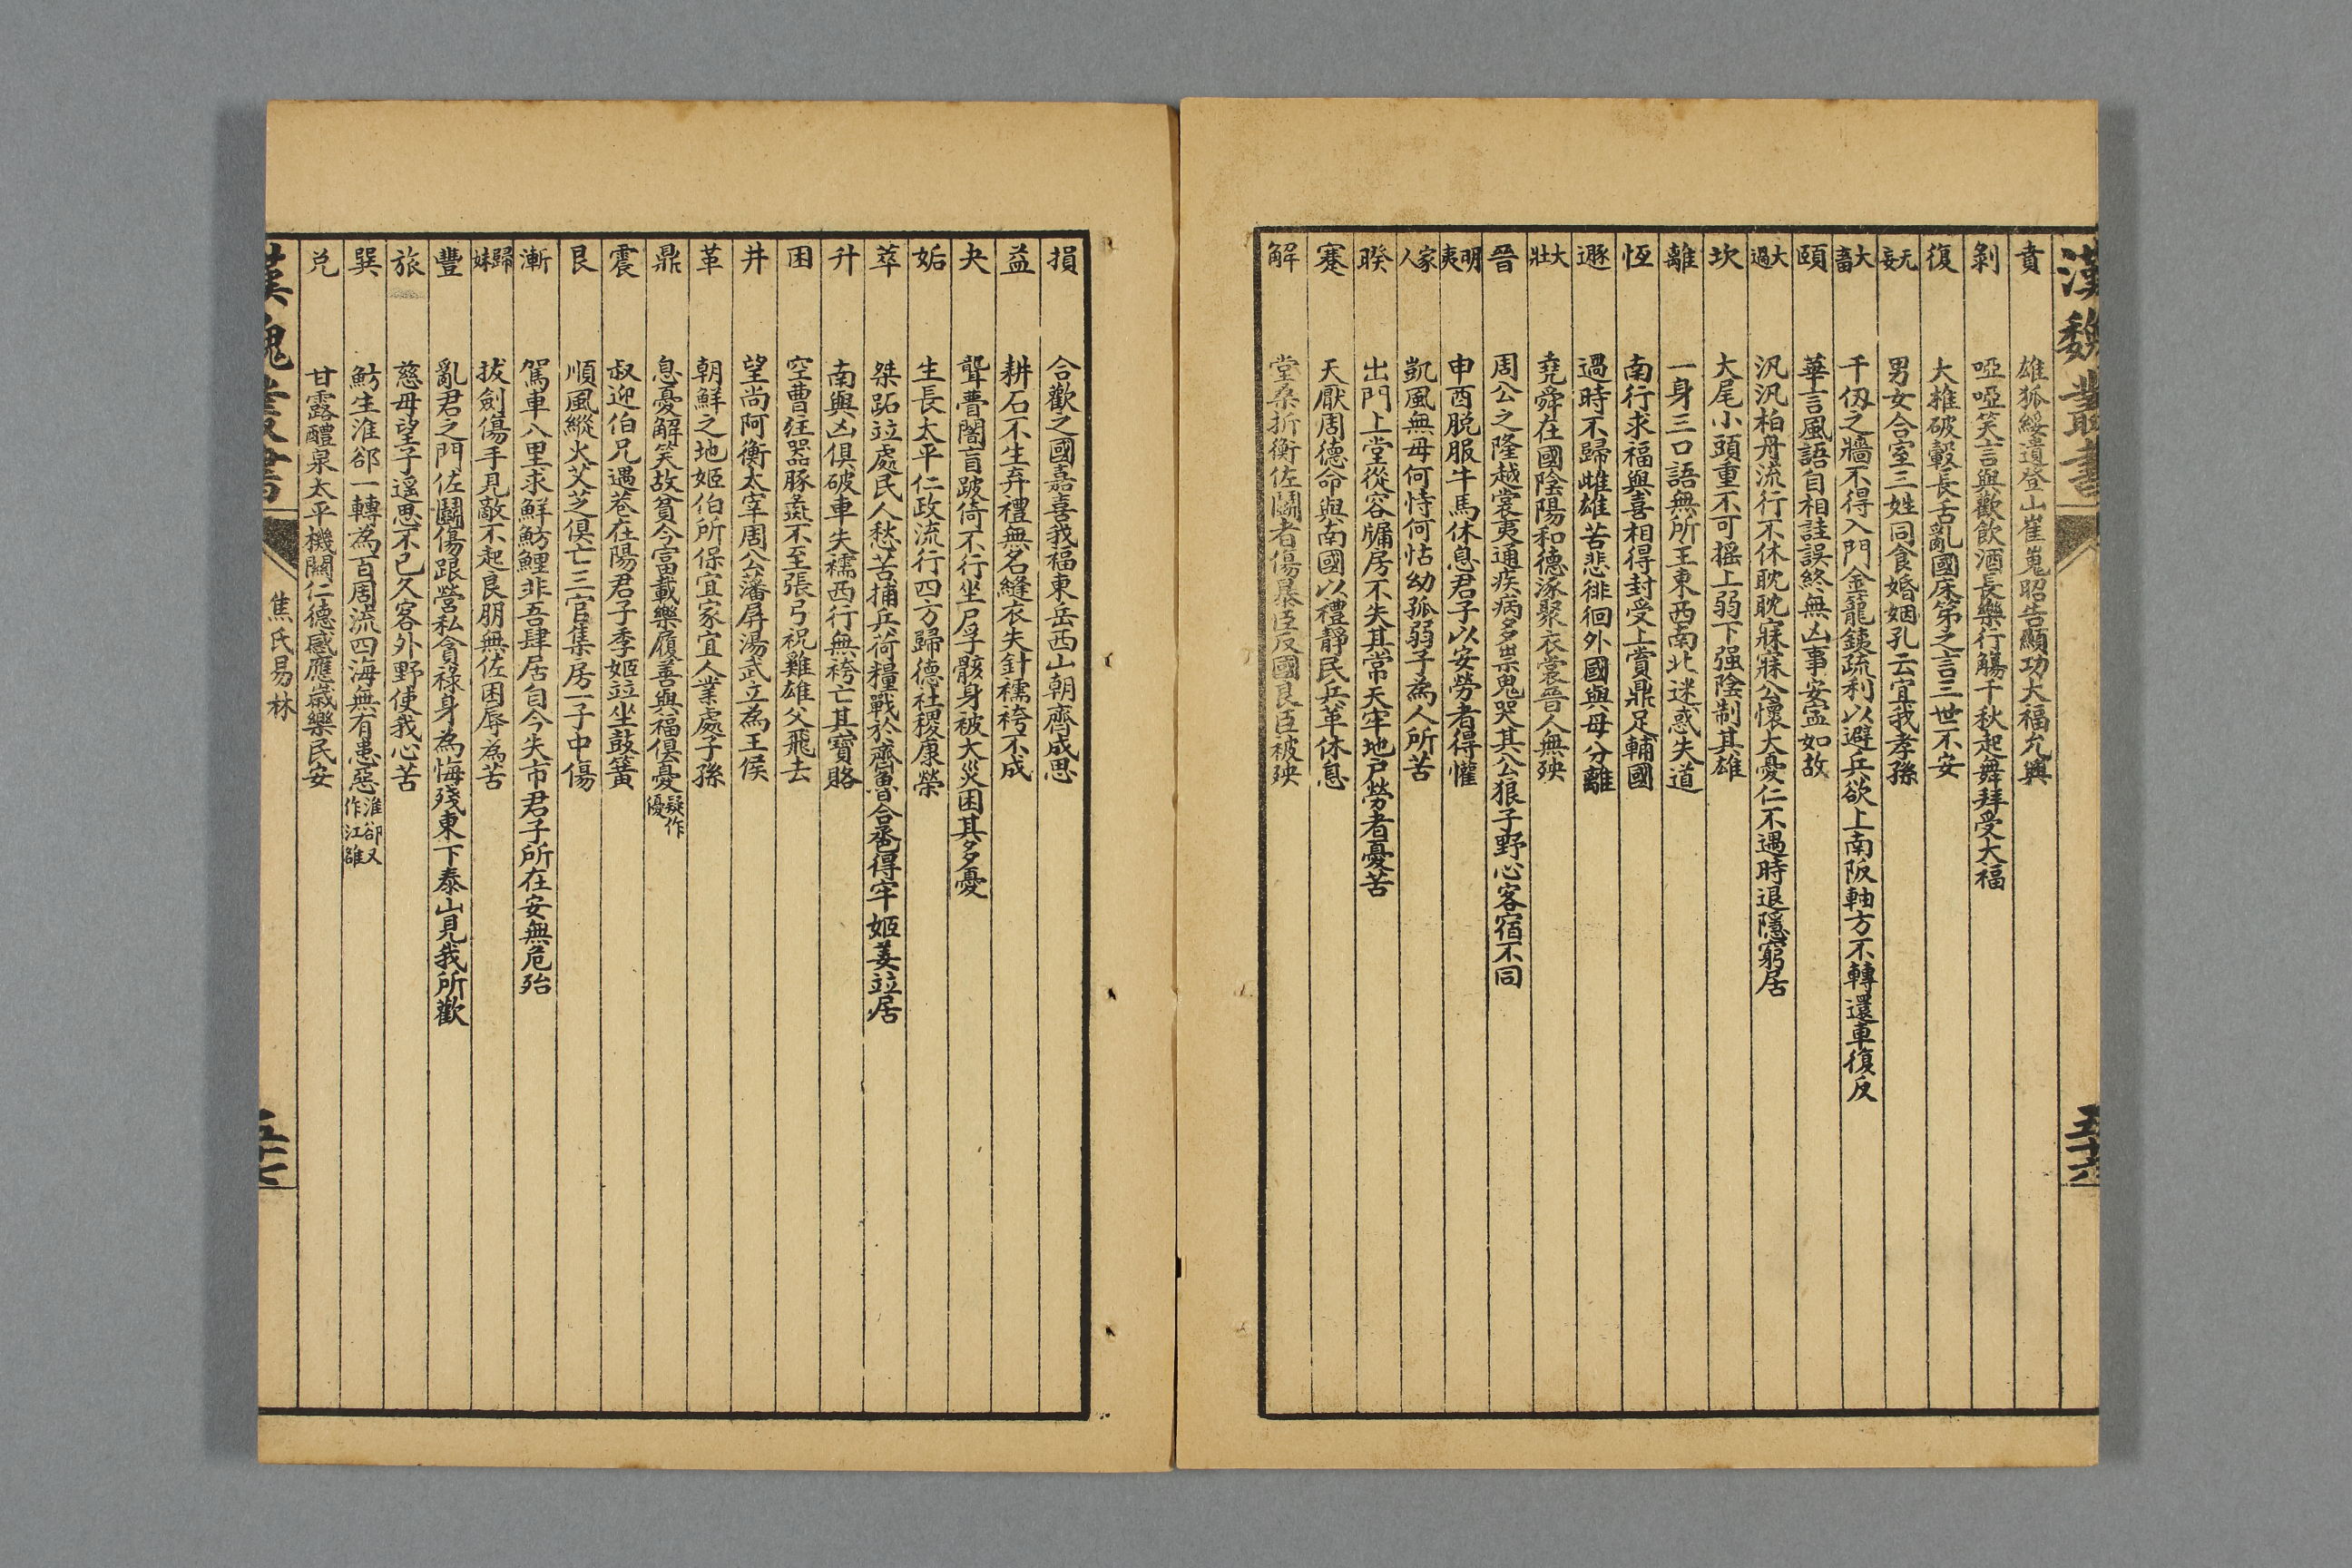 漢魏叢書
五十六
賁 雄狐綏遺登山崔嵬昭告顯功大福允興
剝 啞啞笑言與歡飲酒長樂行觴千秋起舞拜受大福
復 大椎破轂長舌亂國床笫之言三世不安
无妄 男女合室三姓同食婚姻孔云宜我孝孫
大畜 千仞之牆不得入門金籠鐵疏利以避兵欲上南阪軸方不轉還車復反
頤 華言風語自相詿誤終無凶事安寍如故
大過 汎汎柏舟流行不休耿耿寐寐公懷大憂仁不遇時退隱窮居
坎 大尾小頭重不可搖上弱下强陰制其雄
離 一身三口語無所主東西南北迷惑失道
恆 南行求福與喜相得封受上賞鼎足輔國
遯 過時不歸雌雄苦悲徘徊外國與母分離
大壯 堯舜在國陰陽和德涿聚衣裳晉人無殃
晉 周公之隆越裳夷通疾病多祟鬼哭其公狼子野心客宿不同
明夷 申酉脫服牛馬休息君子以安勞者得懽
家人 凱風無母何恃何怙幼孤弱子為人所苦
睽 出門上堂從容牖房不失其常天牢地戶勞者憂苦
蹇 天厭周德命與南國以禮靜民兵革休息
解 堂桑折衡佐鬭者傷暴臣反國良臣被殃
損 合歡之國嘉喜我福東岳西山朝齊成思
益 耕石不生弃禮無名縫衣失針襦袴不成
夬 聾瞢闇盲跛倚不行坐尸孚骸身被大災困其多憂
姤 生長太平仁政流行四方歸德社稷康榮
萃 桀跖竝處民人愁苦捕兵荷糧戰於齊魯合巹得牢姬姜竝居
升 南與凶俱破車失襦西行無袴亡其寶賂
困 空曹注器豚彘不至張弓祝雞雄父飛去
井 望尚阿衡太宰周公藩屏湯武立為王侯
革 朝鮮之地姬伯所保宜家宜人業處子孫
鼎 息憂解笑故貧今富載樂履善與福俱憂疑作優
震 叔迎伯兄遇巷在陽君子季姬竝坐鼓簧
艮 順風縱火艾芝俱亡三官集房一子中傷
漸 駕車入里求鮮魴鯉非吾肆居自今失市君子所在安無危殆
歸妹 拔劍傷手見敵不起良朋無佐困辱為苦
豐 亂君之門佐鬭傷跟營私貪祿身為悔殘東下泰山見我所歡
旅 慈母望子遥思不已久客外野使我心苦
巽 魴生淮郤一轉為百周流四海無有患惡淮郤又作江雒
兌 甘露醴泉太平機關仁德感應歲樂民安
漢魏叢書
焦氏易林
五十七